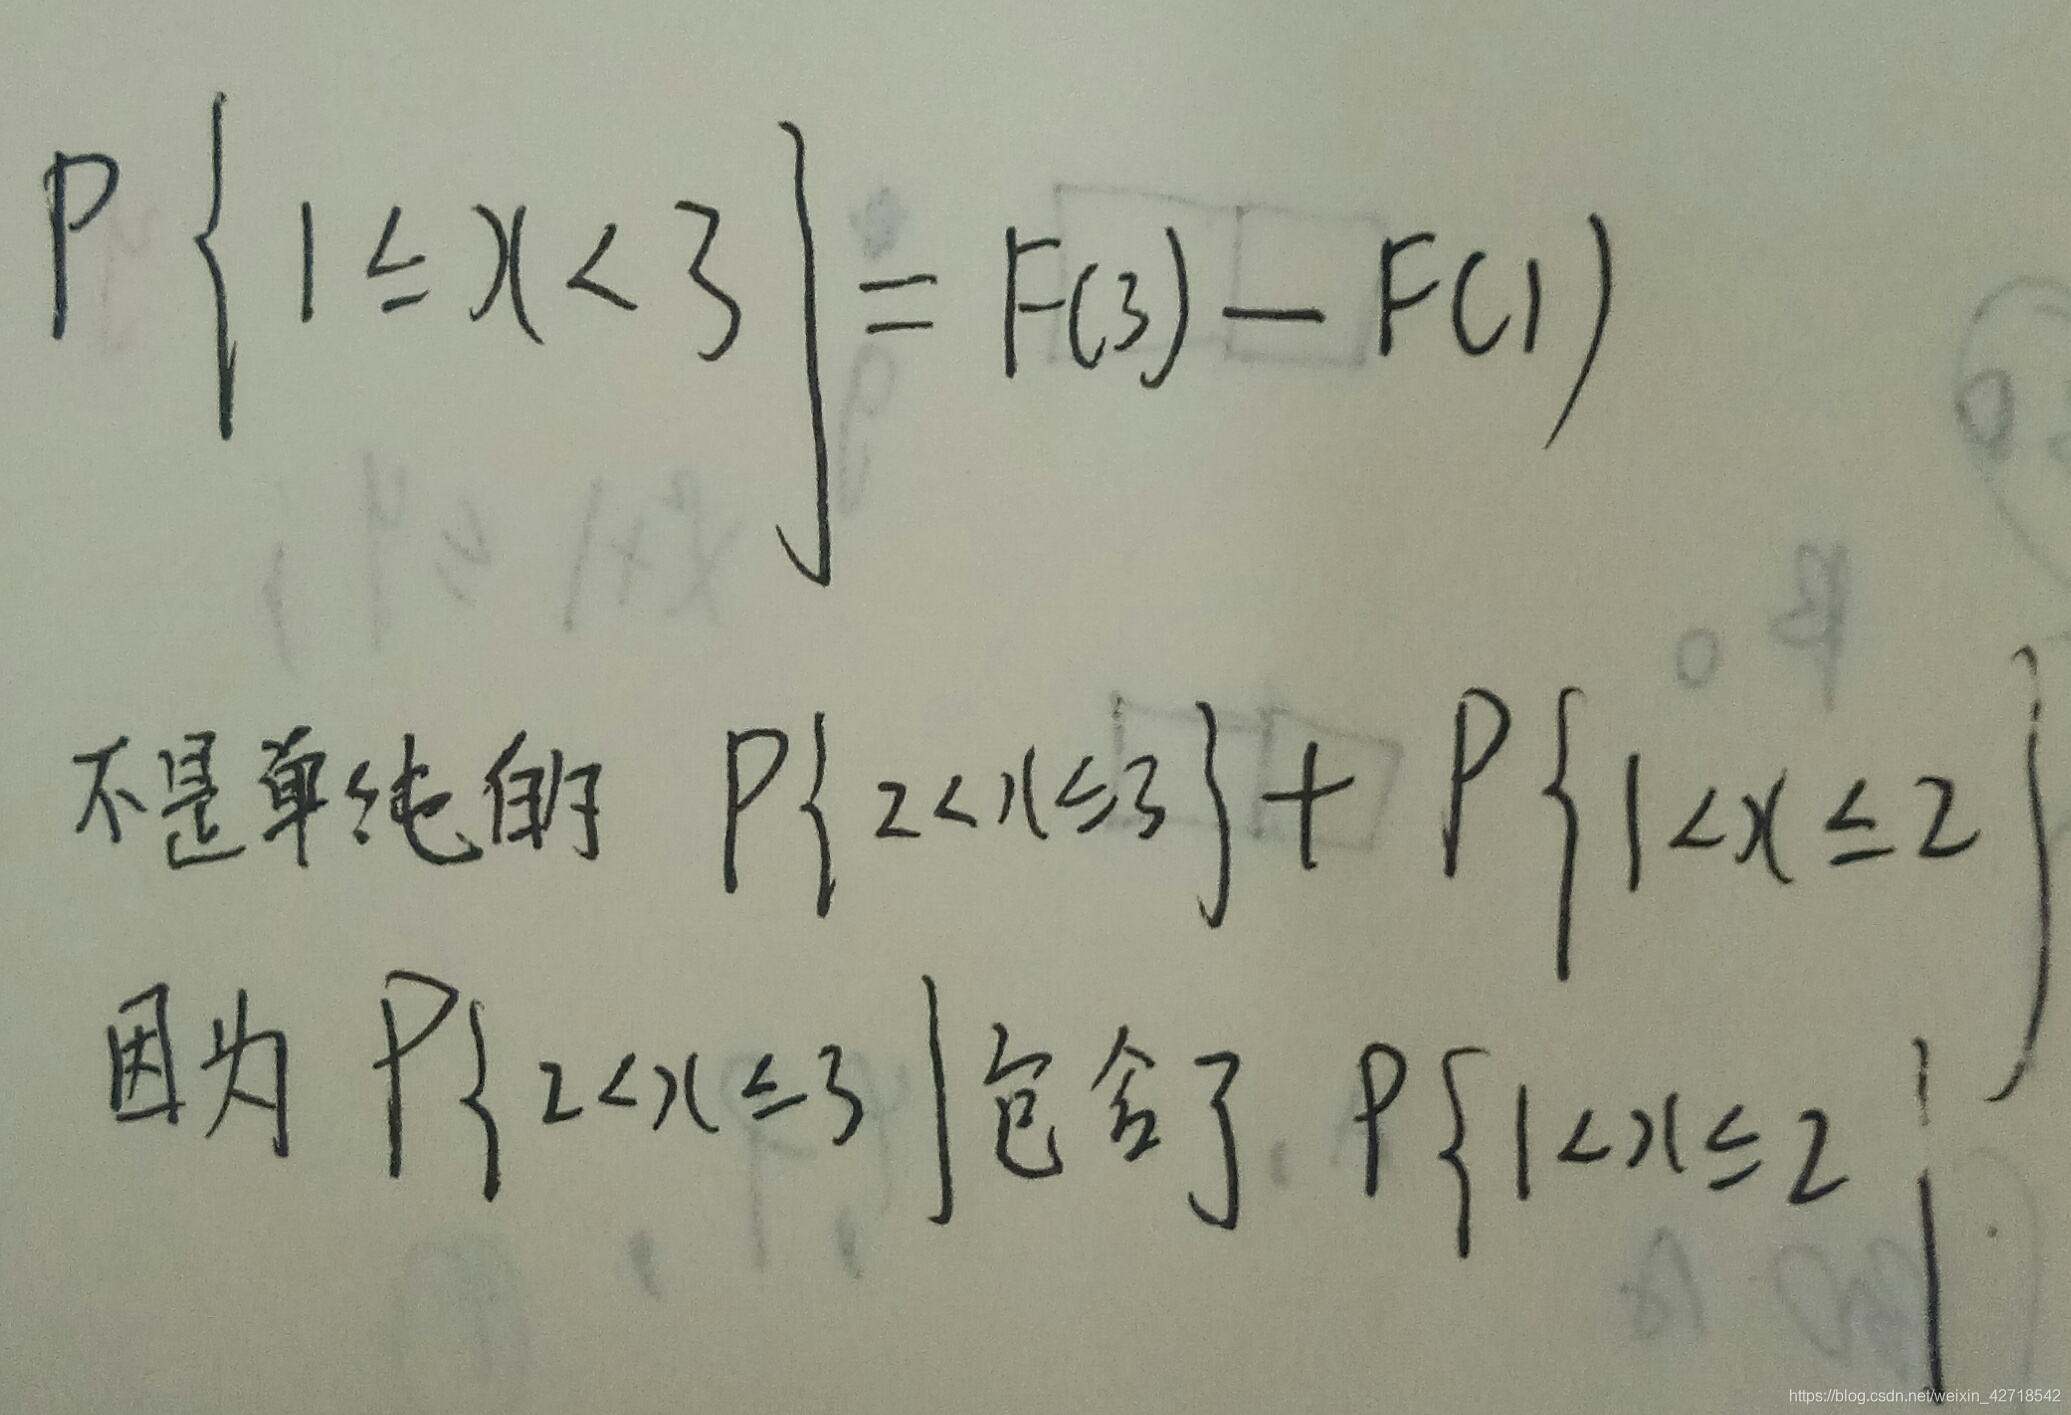 P{1≤x<3}=F(3)-F(1)
不是单纯的 P{2<x≤3}+P{1<x≤2}
因为 P{2<x≤3}包含了 P{1<x≤2}
https://blog.csdn.net/weixin_42718542